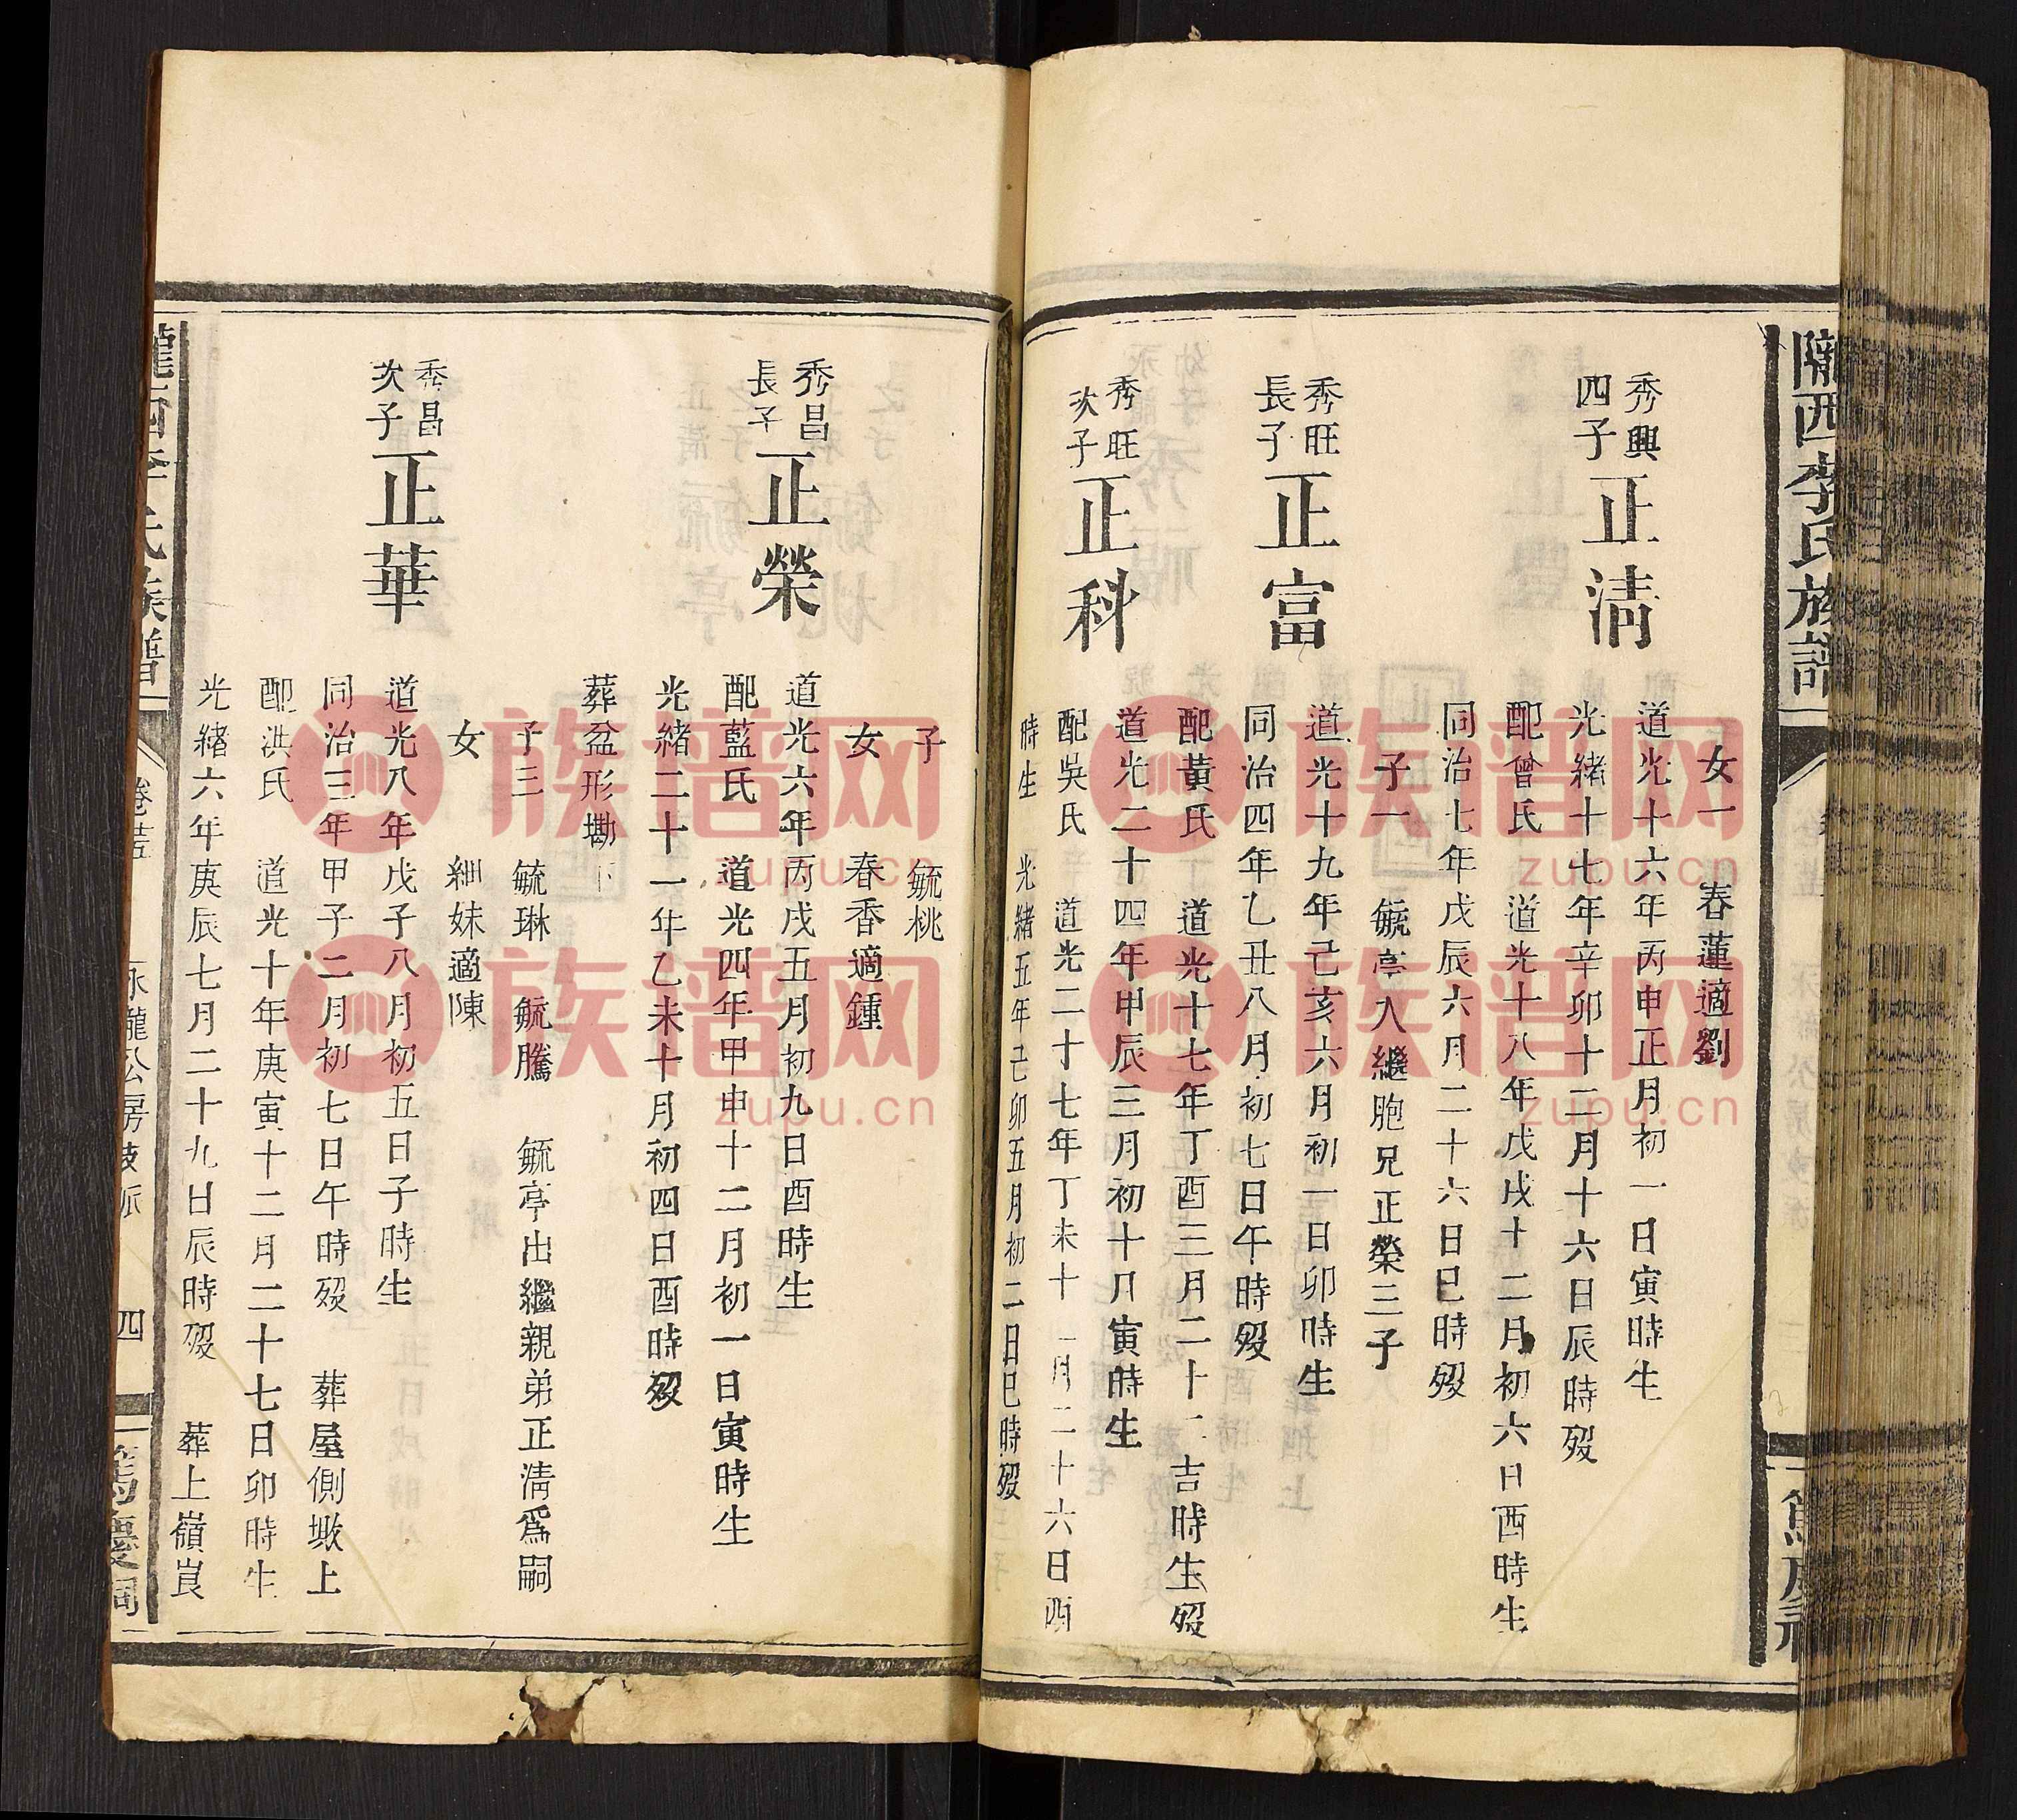 隴西李氏族譜
女一 春蓮適劉
秀興
四子
正清
道光十六年丙申正月初一日寅時生
光緒十七年辛卯十二月十六日辰時殁
配曾氏 道光十八年戊戌十二月初六日酉時生
同治七年戊辰六月二十六日巳時殁
子一 毓亭入繼胞兄正榮三子
秀旺
長子
正富
道光十九年己亥六月初一日卯時生
同治四年乙丑八月初七日午時殁
配黃氏 道光十七年丁酉三月二十二吉時生殁
秀旺
次子
正科
道光二十四年甲辰三月初十日寅時生
配吳氏 道光二十七年丁未十一月二十六日酉
時生 光緒五年己卯五月初二日巳時殁
子 毓桃
女 春香適鍾
秀昌
長子
正榮
道光六年丙戌五月初九日酉時生
配藍氏 道光四年甲申十二月初一日寅時生
光緒二十一年乙未十月初四日酉時殁
葬盆形墈下
子三 毓琳 毓騰 毓亭出繼親弟正清爲嗣
女 細妹適陳
秀昌
次子
正華
道光八年戊子八月初五日子時生
同治三年甲子二月初七日午時殁 葬屋側墩上
配洪氏 道光十年庚寅十二月二十七日卯時生
光緒六年庚辰七月二十九日辰時殁 葬上嶺崀
隴西李氏族譜
永瀧公房枝派
四
族谱网
zupu.cn
族谱网
zupu.cn
族谱网
zupu.cn
族谱网
zupu.cn